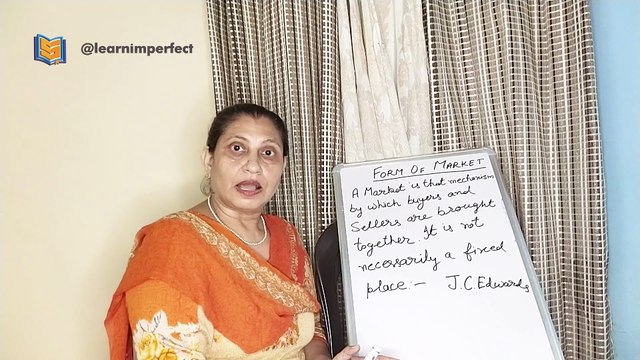 @learnimperfect
FORM OF MARKET
A Market is that mechanism
by which buyers and
Sellers are brought
together. It is not
necessarily a fixed
place:- J.C.Edwards